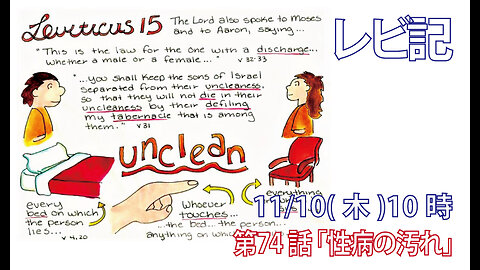 Leviticus 15
The Lord also spoke to Moses
and to Aaron, saying...
"This is the law for the one with a discharge...
whether a male or a female..."
v 32-33
"...you shall keep the sons of Israel
separated from their uncleanness,
so that they will not die in their
uncleanness by their defiling
my tabernacle that is among
them..."
v 31
unclean
every
bed on which
the person
lies...
v 4,20
Whoever
touches...
...the bed... the person...
anything on which
everything
レビ記
11/10(木)10時
第74話「性病の汚れ」